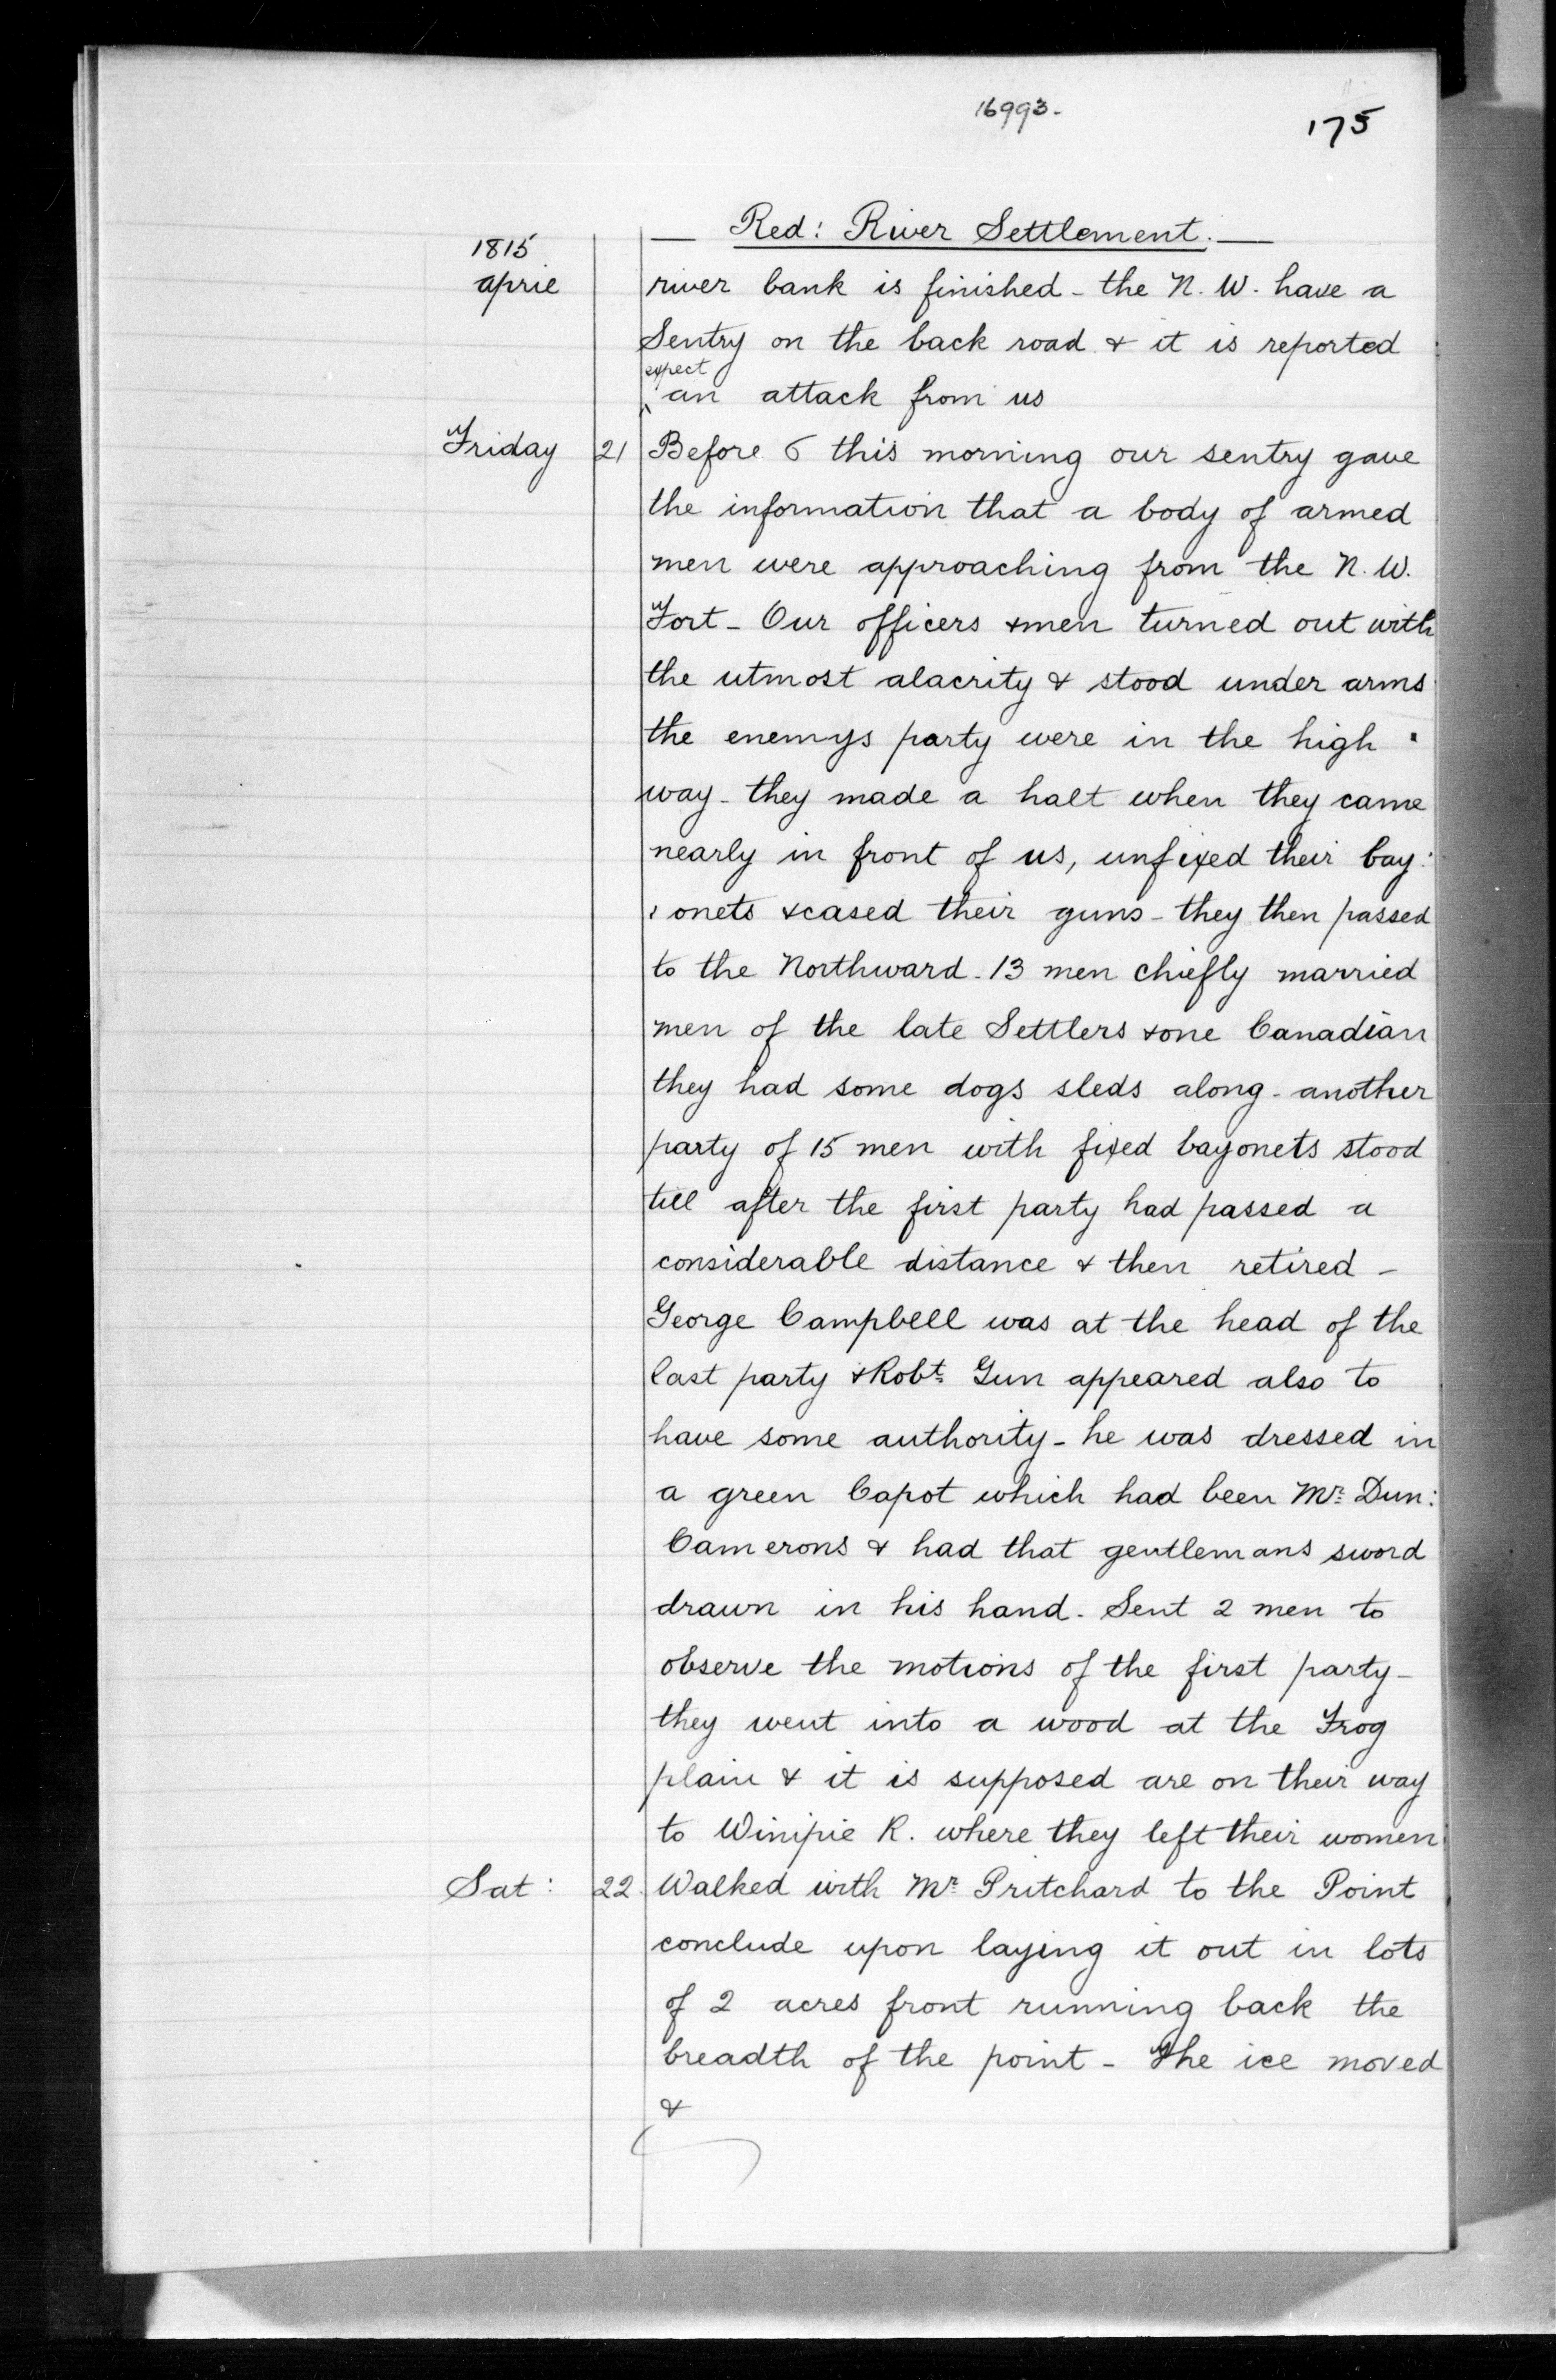 16993.
175
— Red: River Settlement. —
1815
april
river bank is finished - the N. W. have a
Sentry on the back road & it is reported
expect
an attack from us
Friday 21 Before 6 this morning our sentry gave
the information that a body of armed
men were approaching from the N. W.
Fort - Our officers & men turned out with
the utmost alacrity & stood under arms
the enemys party were in the high
way - they made a halt when they came
nearly in front of us, unfixed their bay:
: onets & cased their guns - they then passed
to the Northward - 13 men chiefly married
men of the late Settlers & one Canadian
they had some dogs sleds along - another
party of 15 men with fixed bayonets stood
till after the first party had passed a
considerable distance & then retired -
George Campbell was at the head of the
last party & Robt. Gun appeared also to
have some authority - he was dressed in
a green Capot which had been Mr. Dun:
Camerons & had that gentlemans sword
drawn in his hand. Sent 2 men to
observe the motions of the first party -
they went into a wood at the Frog
plain & it is supposed are on their way
to Winipic R. where they left their women
Sat: 22. Walked with Mr. Pritchard to the Point
conclude upon laying it out in lots
of 2 acres front running back the
breadth of the point - The ice moved
&